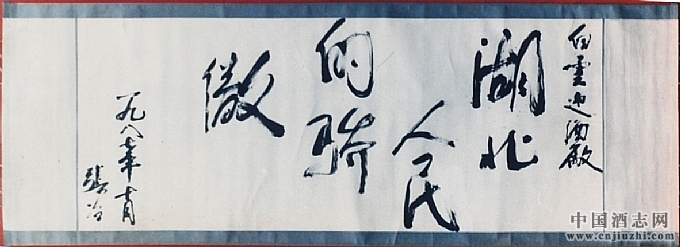 白雲边酒厰
湖北
人民
的骄
傲
一九八七年十月
中国酒志网
www.cnjiuzhi.com